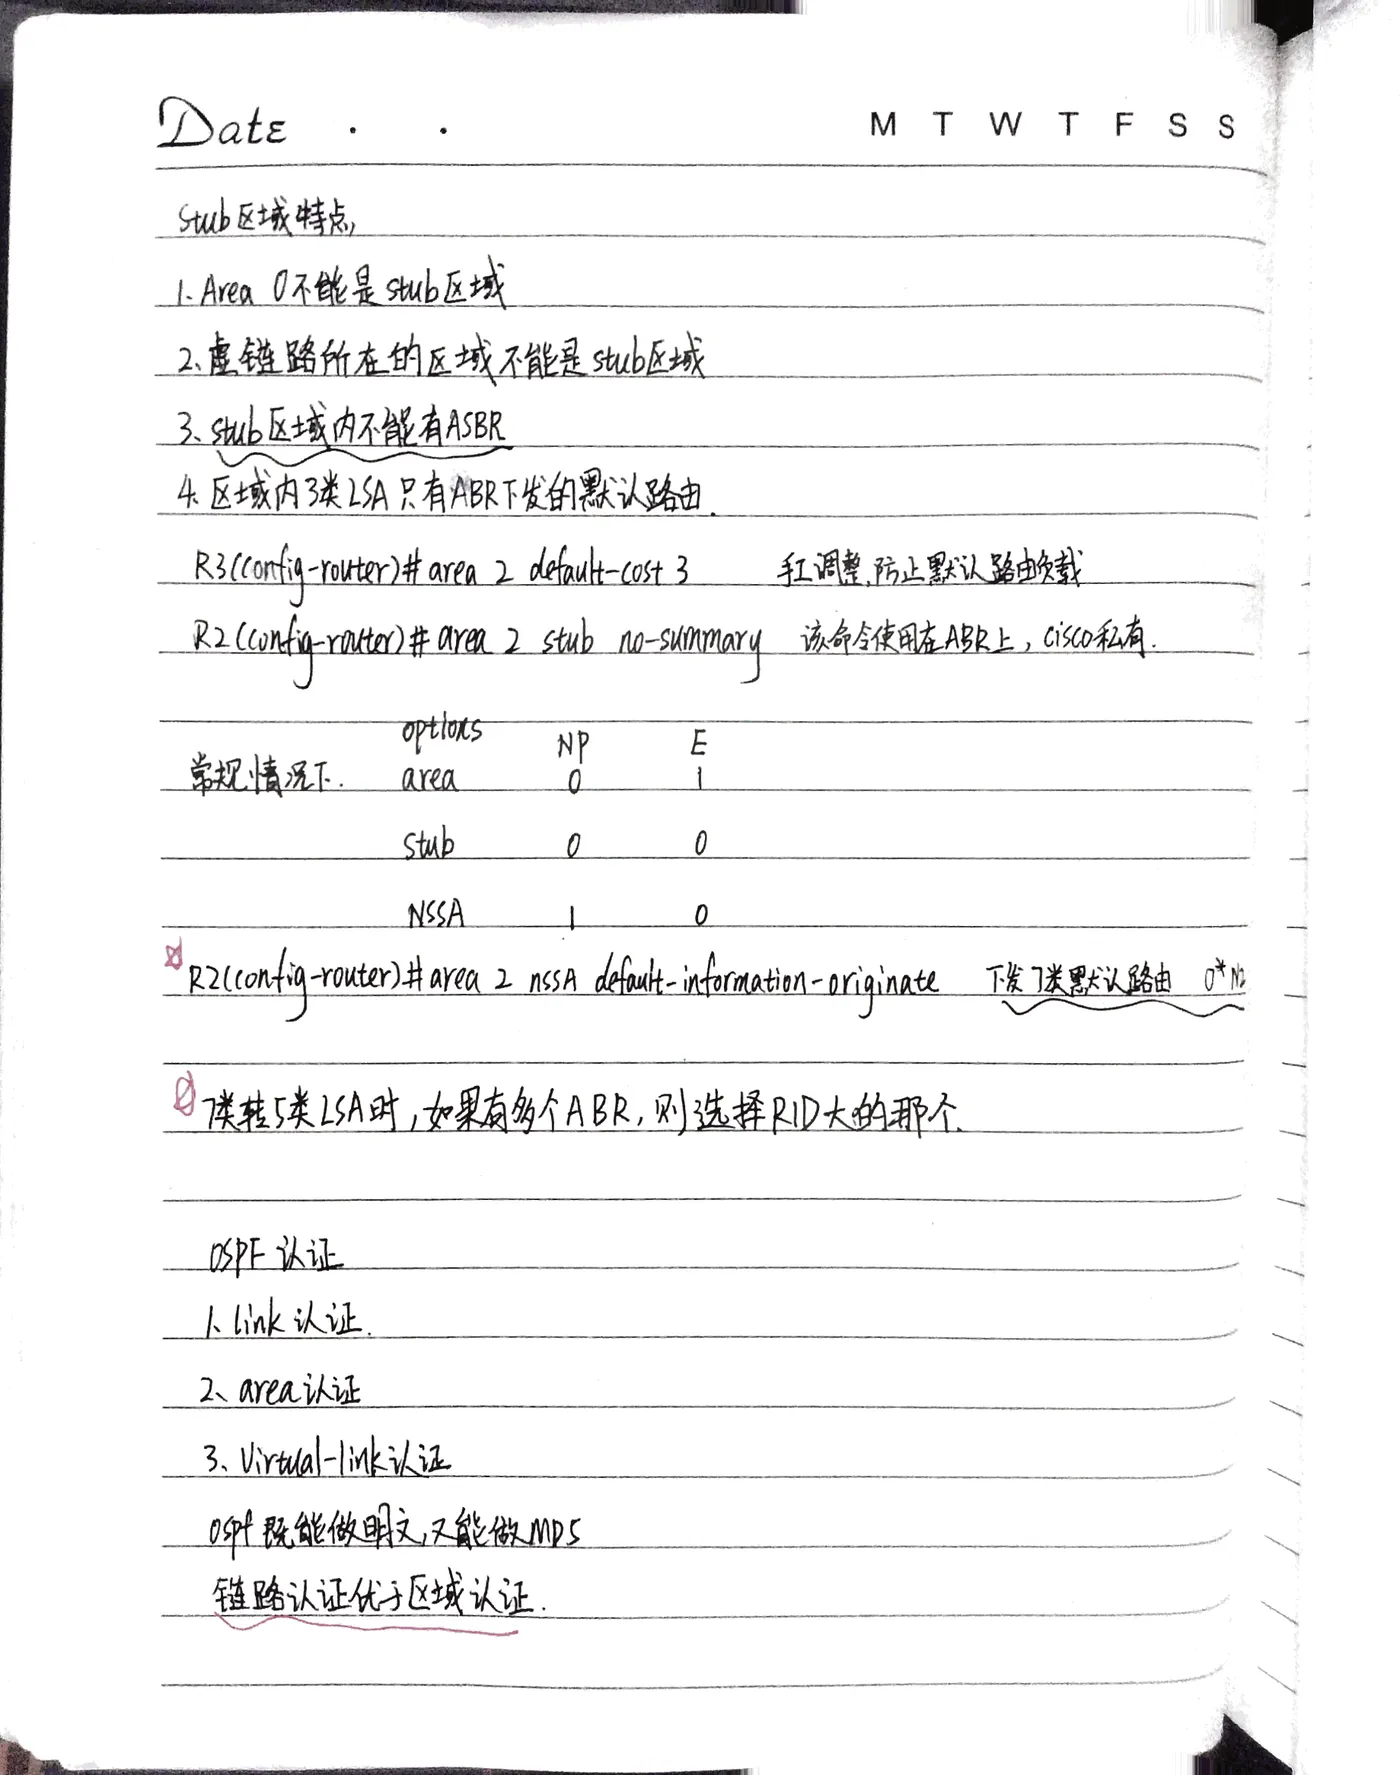 Date . . M T W T F S S
Stub区域特点,
1. Area 0不能是stub区域
2、虚链路所在的区域不能是stub区域
3、stub区域内不能有ASBR
4. 区域内3类LSA只有ABR下发的默认路由.
R3(config-router)# area 2 default-cost 3 手工调整,防止默认路由负载
R2(config-router)# area 2 stub no-summary 该命令使用在ABR上, cisco私有.
options NP E
常规情况下. area 0 1
stub 0 0
NSSA 1 0
R2(config-router)# area 2 nssA default-information-originate 下发7类默认路由 O*N2
7类转5类LSA时,如果有多个ABR,则选择RID大的那个.
OSPF 认证
1. link 认证.
2、area认证
3、Virtual-link认证
ospf 既能做明文,又能做MD5
链路认证优于区域认证.